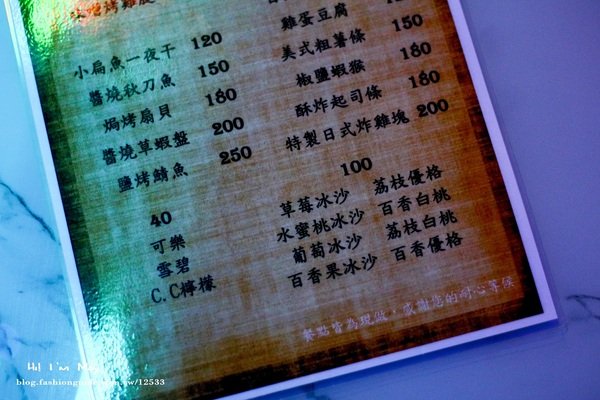 小扁魚一夜干 120
醬燒秋刀魚 150
焗烤扇貝 180
醬燒草蝦盤 200
鹽烤鯖魚 250
雞蛋豆腐
美式粗薯條 150
椒鹽蝦猴 180
酥炸起司條 180
特製日式炸雞塊 200
40
可樂
雪碧
C.C檸檬
100
草莓冰沙 荔枝優格
水蜜桃冰沙 百香白桃
葡萄冰沙 荔枝白桃
百香果冰沙 百香優格
餐點皆為現做，感謝您的耐心等候
Hi! I'm